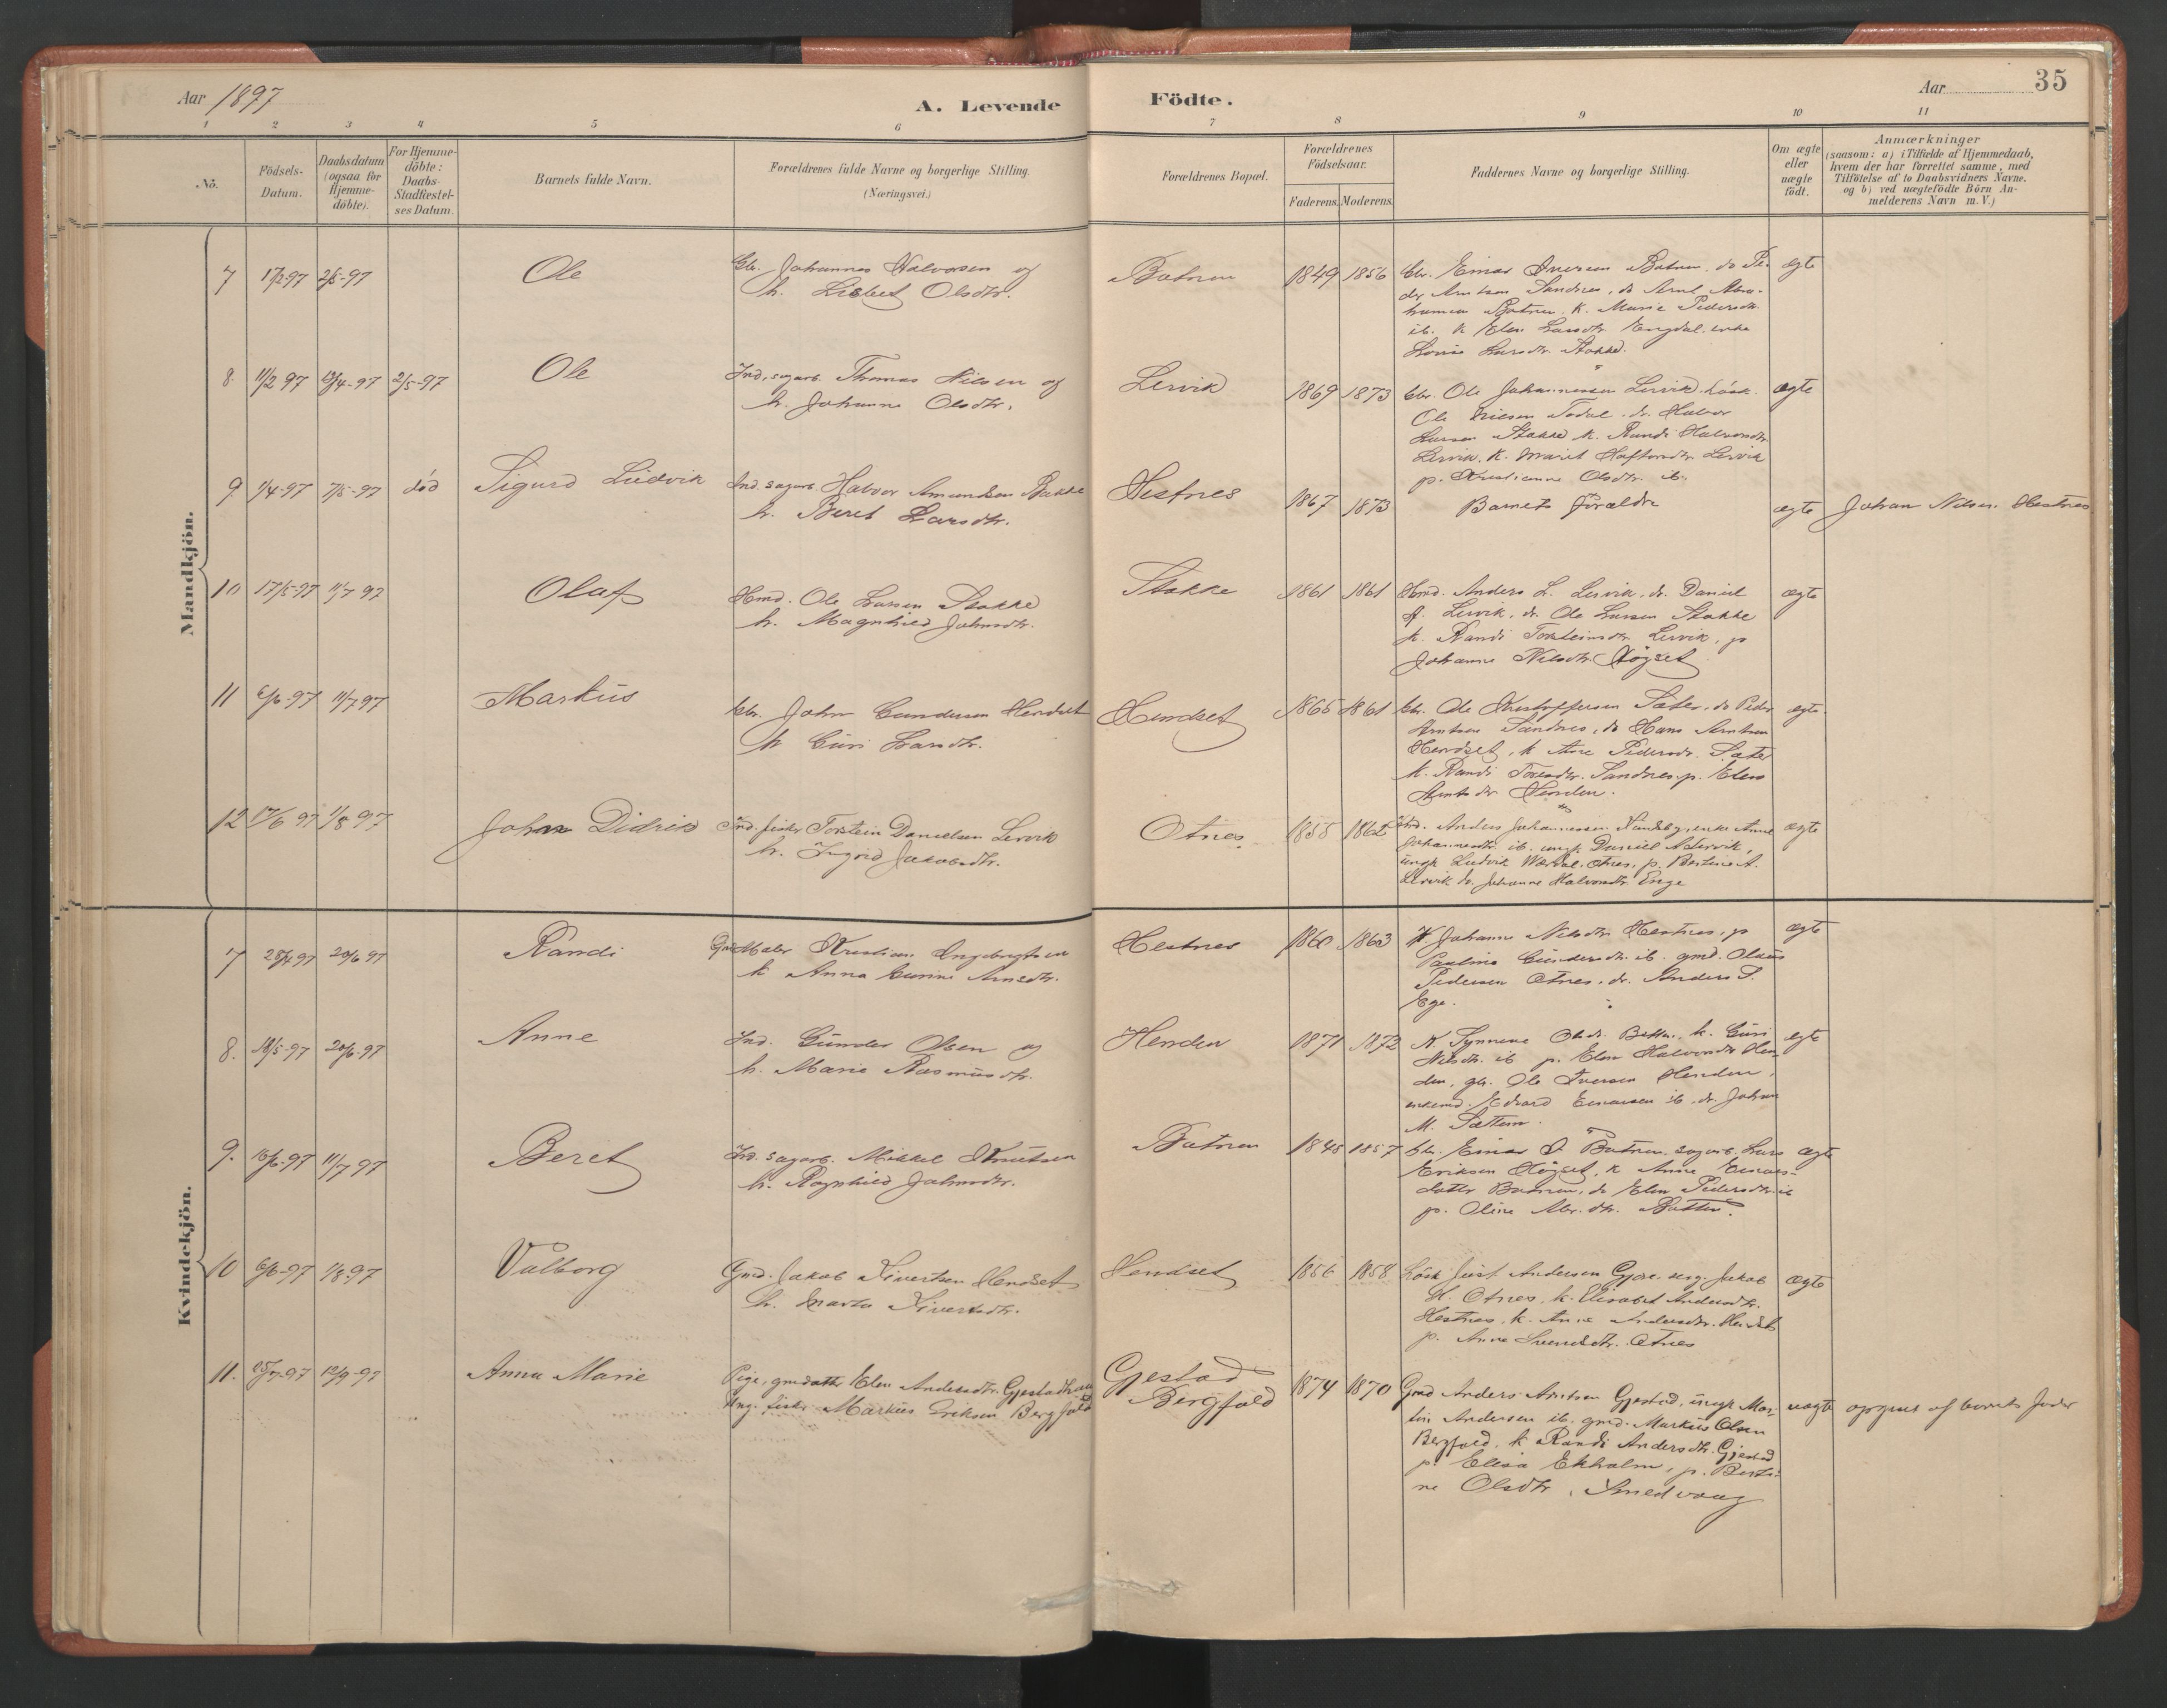 Aar 1897
A. Levende Födte.
Aar 35
1 2 3 4 5 6 7 8 9 10 11
No.
Födsels-Datum.
Daabsdatum (ogsaa for Hjemme-döbte).
For Hjemme-döbte: Daabs-Stadfæstel-ses Datum.
Barnets fulde Navn.
Forældrenes fulde Navne og borgerlige Stilling. (Næringsvei.)
Forældrenes Bopæl.
Forældrenes Födselsaar.
Faderens. Moderens.
Faddernes Navne og borgerlige Stilling.
Om ægte eller uægte födt.
Anmærkninger
(saasom: a) i Tilfælde af Hjemmedaab,
hvem der har forrettet samme, med
Tilföielse af to Daabsvidners Navne.
og b) ved uægtefödte Börn An-
melderens Navn m. V.)
Mandkjön.
7 2/5-97 Ole
Gbr. Johannes Halvorsen og
h. Lisbet Olsdtr.
Botnen 1849 1856
Gbr. Einar Iversen Botnen, do Pe-
der Arntsen Sandnes, do Arnt Abra-
hamsen Botnen, k. Marie Pedersdtr.
ib. k Elen Larsdtr. Engdal. enke
Larsdtr. Stokke.
ægte
8. 11/2 97 /4-97 2/5-97 Ole
Ind. sagarb. Thomas Nilsen og
h. Johanne Olsdtr.
Lervik 1869 1873
Gbr. Ole Johannessen Lervik, Lösk.
Ole Nilsen Todal. dr. Halvor
Larsen Stokke k. Randi Halvorsdtr.
Lervik. k. Marit Lervik
p. Kristianne Olsdtr. ib.
ægte
9 1/4-97 7/5-97 död Sigurd Ludvik
Ind. sagarb. Halvor Amundsen Bakke
h. Beret Larsdtr.
Hestnes 1867 1873
Barnets Forældre
ægte Johan Nilsen Hestnes
10 17/5-97 11/7 97 Olaf
Hmd. Ole Larsen Stokke
h. Magnhild Johnsdtr.
Stokke 1861 1861
Hmd. Anders L. Lervik, dr. Daniel
A. Lervik, dr. Ole Larsen Stokke
k. Randi Torsteinsdtr. Lervik, p
Johanne Nilsdtr. Högset
ægte
11 6/6-97 11/7 97 Markus
Gbr. John Gundersen Hendset
h Guri Larsdtr.
Hendset 1865 1861
Gbr. Ole Kristoffersen Sæter, do Peder
Arntsen Sandnes, do Hans Arntsen
Hendset, k Ane Pedersdr. Sæter
k. Randi Toresdtr. Sandnes. p. Elen
Arntsdr Henden.
ægte
12 17/6 97 1/8 97 Johan Didrik
Ind. fisker Torstein Danielsen Lervik
h. Ingrid Jakobsdtr.
Otnes 1855 1862
Anders Johannessen enke Anne
Johannesdtr. ib. ungk. Daniel A Lervik,
ungk Ludvik Otnes, p. Bertine A.
Lervik do. Johanne Halvorsdtr. Enge
ægte
Kvindekjön.
7 28/4 97 20/6 97 Randi
Gmd Maler Kristian Ingebrigtsen
k Anna Gurine Arnsdtr.
Hestnes 1860 1863
K. Johanne Nilsdtr. Hestnes, p
Pauline Gundersdtr. ib. gmd. Olaus
Pedersen Otnes, dr. Anders S.
Ege.
ægte
8. /5-97 20/6-97 Anne
Ind. Gunder Olsen og
h. Marie Rasmusdtr.
Henden 1871 1872
K. Synnene Olsdr. Botten, k. Guri
Nilsdtr. ib p. Elen Halvorsdtr Hen
den, gbr. Ole Iversen Henden,
enkemd. Edvard Einarsen ib. dr. Johan
M. Sættem.
ægte
9. /6-97 11/7 97 Beret
Ind. sagarb. Mikkel Knutsen
h. Ragnhild Johnsdtr.
Botnen 1848 1857
Gbr. Einar I Botnen. sagarb. Lars
Eriksen Högset, k Anne Einars-
datter Botnen, do Elen Pedersdtr. ib
p. Oline Abr. dtr. Botten.
ægte
10 6/6-97 1/8 97 Valborg
Gmd. Jakob Sivertsen Hendset
h. Marta Sivertsdtr.
Hendset 1856 1858
Lösk Just Andersen Gjöre, ung. Jakob
H. Otnes, k. Elisabet Andersdtr.
Hestnes, k. Anne Andersdtr. Hendset
p. Anne Otnes
ægte
11. 25/7-97 12/9-97 Anna Marie
Pige, gmdatter Elen Andersdtr. Gjestad
Ung. fisker Markus Eriksen Bergfald
Gjestad
Bergfald
1874 1870
Gmd Anders Arntsen Gjestad, ungk. Mar-
tin Andersen ib. gmd. Markus Olsen
Bergfald. k Randi Andersdtr. Gjestad
p. Elisa Ekholm, p. Berti-
ne Olsdtr. Smedvaag
uægte opgivet af barnets fader